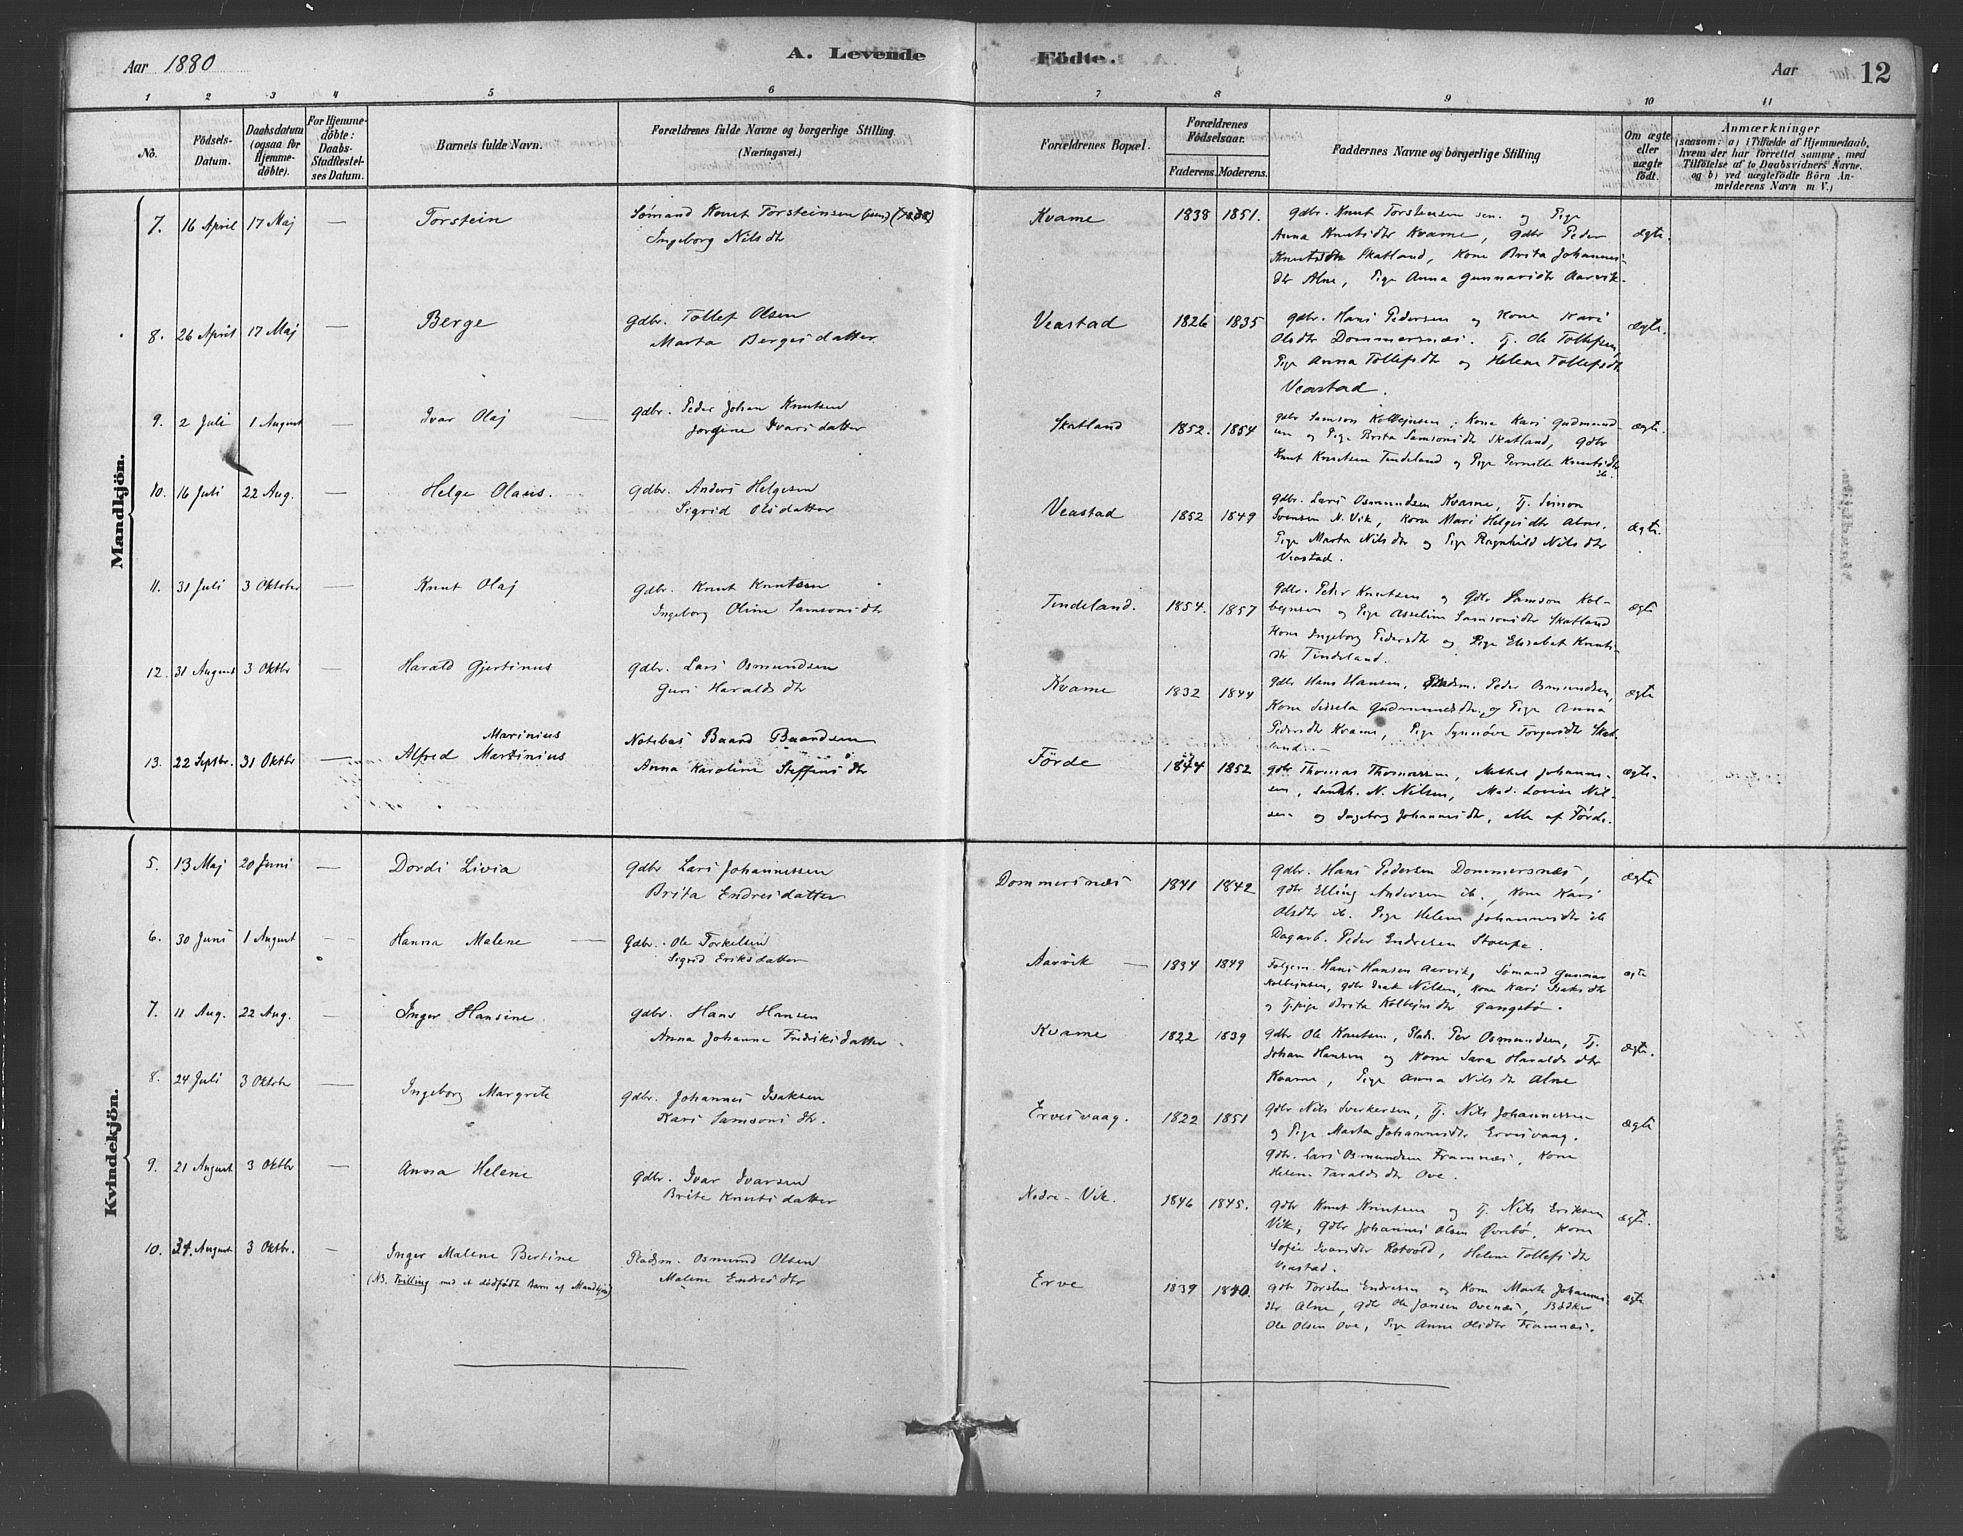 Aar 1880
A. Levende
Födte.
Aar
12
1 2 3 4 5 6 7 8 9 10 11
No.
Födsels-
Datum.
Daabsdatum
(ogsaa for
Hjemme-
döbte).
For Hjemme-
döbte:
Daabs-
Stadfæstel-
ses Datum.
Barnets fulde Navn.
Forældrenes fulde Navne og borgerlige Stilling.
(Næringsvei.)
Forældrenes Bopæl.
Forældrenes
Födselsaar.
Faderens. Moderens.
Faddernes Navne og borgerlige Stilling
Om ægte
eller
uægte
födt.
Anmærkninger
(saasom: a) i Tilfælde af Hjemmedaab,
hvem der har forrettet samme, med
Tilföielse af to Daabsvidners Navne.
og b) ved uægtefödte Börn An-
melderens Navn m. V.)
Mandkjön.
7. 16 April 17 Maj — Torstein
Sømand Knut Torsteinsen
Ingeborg Nilsdtr
Kvame 1838 1851.
gdbr. Knut Torstensen sen. og Pige
Anna Knutsdtr Kvame, gdbr Peder
Skatland, Kone Brita Johannes-
dtr Alne, Pige Anna Gunnarsdtr Aarvik.
ægte.
8. 26 April 17 Maj — Berge
gdbr. Tollef Olsen
Marta Bergesdatter
Veastad 1826 1835
gdbr. Hans Pedersen og Kone Kari
Olsdtr Dommersnæs. Tj. Ole Tollefsen,
Pige Anna Tollefsdtr og Helene Tollefsdtr
Veastad.
ægte.
9. 2 Juli 1 August — Ivar Olaj —
gdbr. Peder Johan Knutsen
Jorgine Ivarsdatter
Skatland 1852. 1854
gdbr Samson Kolbejnsen, Kone Kari Gudmund-
og Pige Brita Samsonsdtr Skatland, gdbr
Knut Knutsen Tindeland og Pige Pernille Knutsdtr
ib.
ægte.
10. 16 Juli 22 Aug. — Helge Olaus.
gdbr. Anders Helgesen
Sigrid Olsdatter
Veastad 1852 1849
gdbr. Lars Osmundsen Kvame, Tj. Simon
Svensen N. Vik, Kone Mari Helgesdtr Alne.
Pige Marta Nilsdtr og Pige Ragnhild Nilsdtr
Veastad.
ægte.
11. 31 Juli 3 Oktober — Knut Olaj
gdbr. Knut Knutsen
Ingeborg Oline Samsonsdtr
Tindeland. 1854. 1857
gdbr. Peter Knutsen og gdbr Samson Kol-
bejnsen og Pige Asseline Samsonsdtr Skatland
Kone Ingeborg Pedersdtr og Pige Elisabet Knuts-
dtr Tindeland.
ægte
12. 31 August 3 Oktbr — Harald Gjertinus
gdbr. Lars Osmundsen
Guri Haraldsdtr
Kvame 1832 1844
gdbr Hans Hansen, Pladsm. Peder Osmundsen,
Kone Sissela og Pige Anna
Pedersdtr Kvame, Pige Synnöve Torgersdtr Skat-
land.
ægte
Marinius
13. 22 Septbr. 31 Oktbr — Alfred Martinius
Notebas Baard Baardsen
Anna Karoline Steffensdtr
Förde 1844 1852
gdbr Thomas Thomassen, Johannes-
sen, N. Nilsen, Mad. Lovise Nil-
sen og Ingeborg Johannesdtr, alle af Förde.
ægte.
Kvindekjön.
5. 13 Maj 20 Juni — Dordi Livia
gdbr Lars Johannessen
Brita Endresdatter
Dommersnæs 1841 1842
gdbr. Hans Pedersen Dommersnæs,
gdbr Elling Andersen ib., Kone Kari
Olsdtr ib. Pige Helene Johannesdtr ib
Dagarb. Peder Endresen Stoupe.
ægte
6. 30 Juni 1 August — Hanna Malene —
Gdbr. Ole Torkelsen
Sigrid Eriksdatter
Aarvik — 1834 1849
Hans Hansen Aarvik, Sømand Gunnar
Kolbejnsen, gdbr Isak Nilsen, Kone Kari Isaksdtr
og Tj.pige Brita Kolbejnsdtr Gangstø.
ægte
7. 11 Aug. 22 Aug. — Inger Hansine.
gdbr. Hans Hansen
Anna Johanne Fredriksdatter.
Kvame 1822 1839
gdbr Ole Knutsen, Plads. Per Osmundsen, Tj.
Johan Hansen og Kone Sara Haraldsdtr
Kvame, Pige Anna Nilsdtr Alne
ægte.
8. 24 Juli 3 Oktobr — Ingeborg Margrete
gdbr. Johannes Isaksen
Kari Samsonsdtr.
Ervesvaag. 1822 1851
gdbr Nils Sverkersen, Tj. Nils Johannessen
og Pige Marta Johannesdtr Ervesvaag.
gdbr. Lars Osmundsen Framnæs, Kone
Helene Taraldsdtr Ove.
ægte
9. 21 August 3 Oktbr — Anna Helene
gdbr. Ivar Ivarsen
Brite Knutsdatter
Nedre-Vik. 1846 1845.
gdbr Knut Knutsen og Tj. Nils Eriksen
Vik, gdbr Johannes Olsen Övrebö, Kone
Sofie Ivarsdtr Rotvold, Helene Tollefsdtr
Veastad.
ægte.
10. 31. August 3 Oktbr. — Inger Malene Bertine
(NB. Tvilling med et dödfödt barn af Mandkjön)
Pladsm. Osmund Olsen
Malene Endresdtr
Erve 1839 1840.
gdb Torsten Endresen og Kone Marta Johannes-
dtr Alne, gdbr Ole Jansen Ovenæs, Bödker
Ole Olsen Ove, Pige Anne Olsdtr Framnæs.
ægte